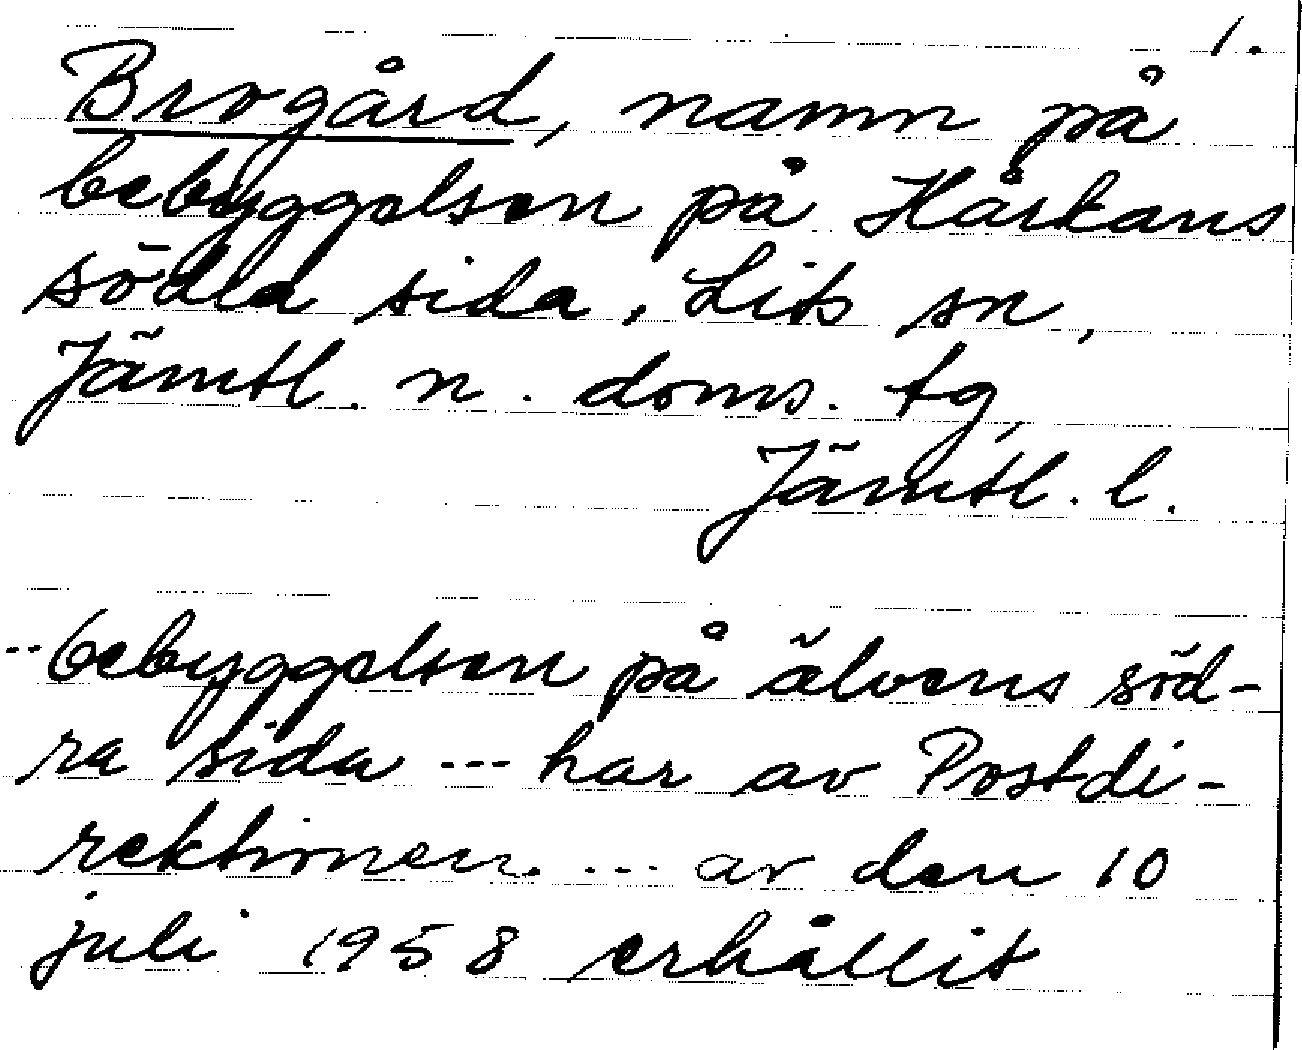 1.
Brogård, namn på
bebyggelsen på Hårkans
södra sida, Lits sn,
Jämtl. n. doms. tg,
Jämtl. l.
--bebyggelsen på älvens söd-
ra sida --- har av Postdi-
rektionen. --- av den 10
juli 1958 erhållit